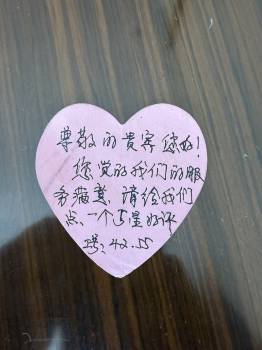 尊敬的贵宾您好!
您觉的我们的服
务满意,请给我们
点一个5星好评
号:42.55